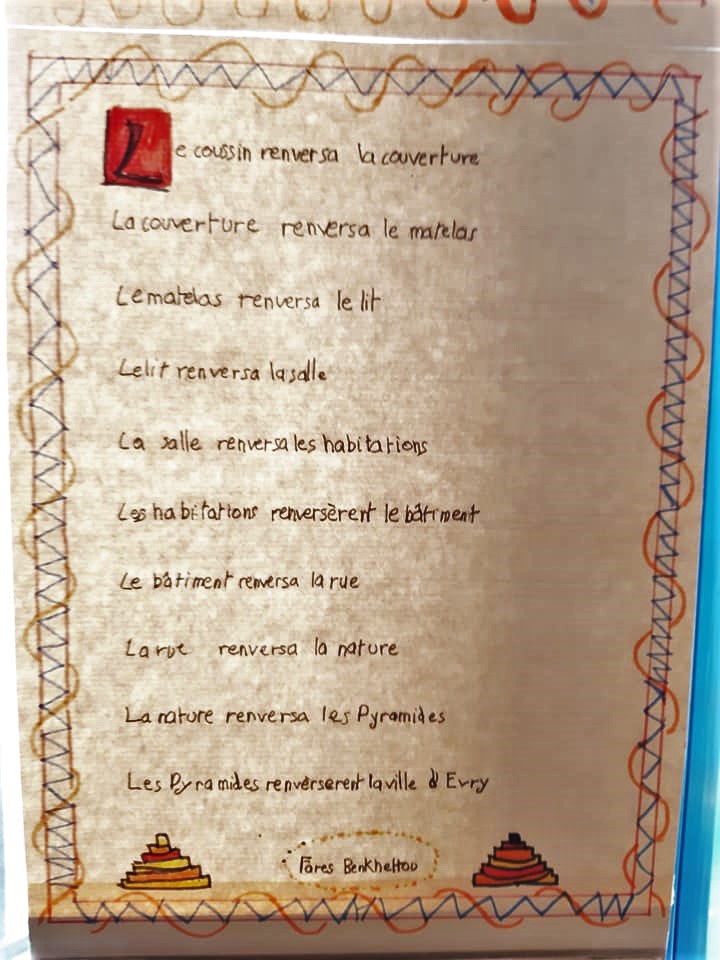 Le coussin renversa la couverture
La couverture renversa le matelas
Le matelas renversa le lit
Le lit renversa la salle
La salle renversa les habitations
Les habitations renversèrent le bâtiment
Le bâtiment renversa la rue
La rue renversa la nature
La nature renversa les Pyramides
Les Pyramides renverserent la ville d'Evry
Fares Benkhettou